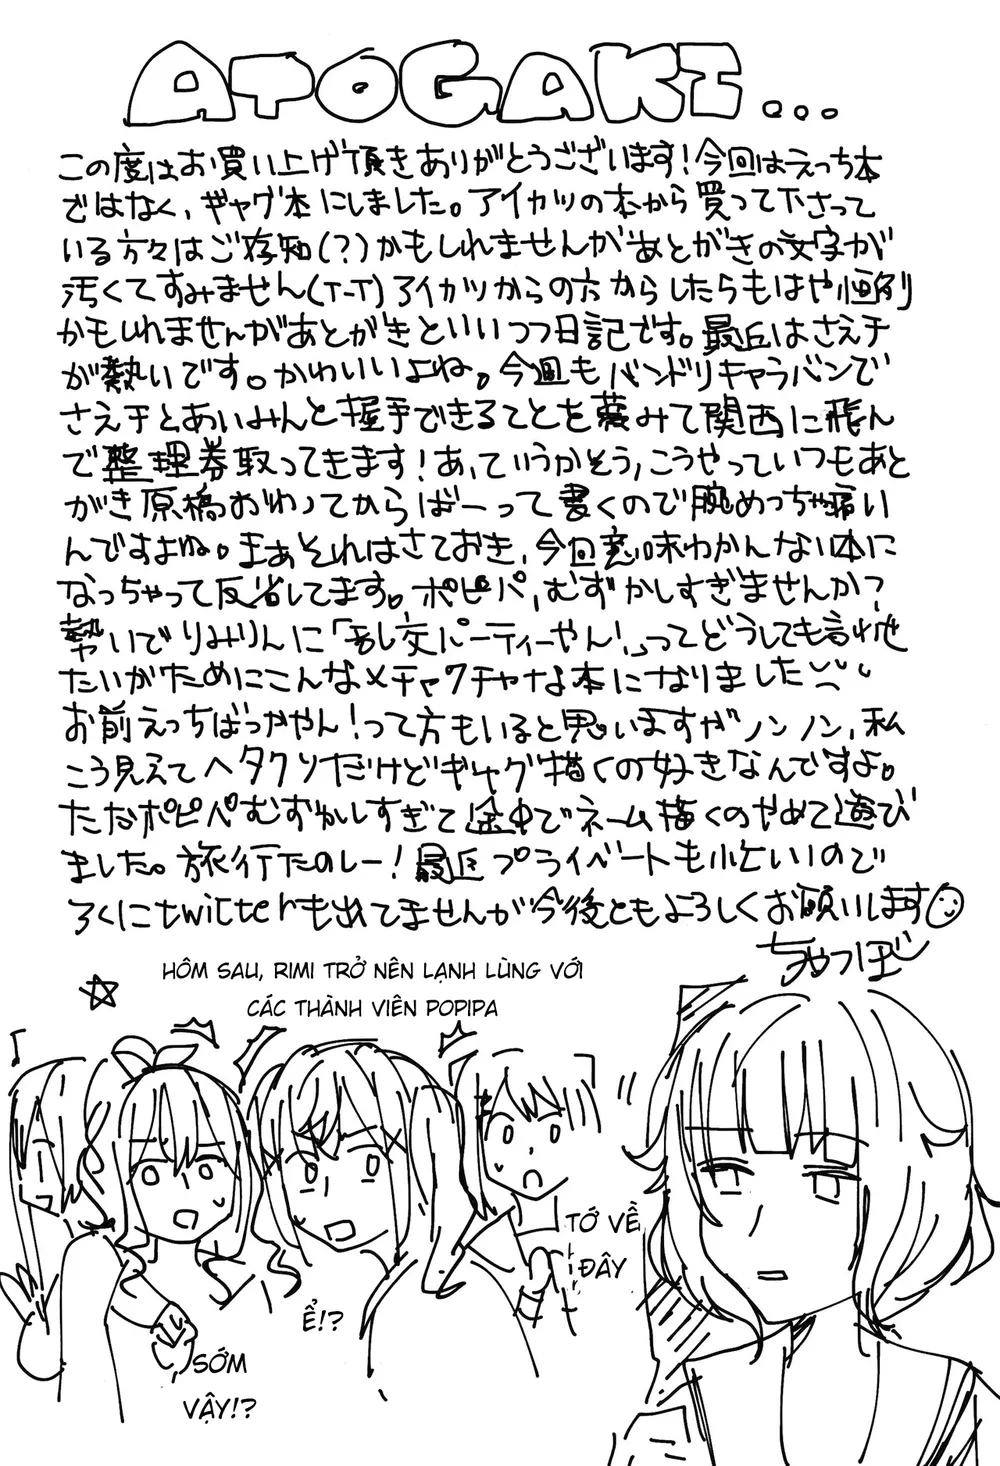 ATOGAKI...
この度はお買い上げ頂きありがとうございます!今回はえっち本
ではなく、ギャグ本にしました。アイカツの本から買って下さって
いる方々はご存知(?)かもしれませんがあとがきの文字が
汚くてすみません(T-T)アイカツからの方からしたらもはや恒例
かもしれませんがあとがきといいつつ日記です。最近はさえチ
が熱いです。かわいいよね。今週もバンドリキャラバンで
さえチとあいみんと握手できることを夢みて関西に飛ん
で整理券取ってきます!あ、ていうかそう、こうやっていつもあと
がき原稿おわってからばーって書くので腕めっちゃ痛い
んですよね。まぁそれはさておき、今回意味わかんない本に
なっちゃって反省してます。ポピパ、むずかしすぎませんか?
勢いでりみりんに「乱交パーティーやん!」ってどうしても言わせ
たいがためにこんなメチャクチャな本になりました
お前えっちばっかやん!って方もいると思いますがノンノン、私
こう見えてヘタクソだけどギャグ描くの好きなんですよ。
ただポピパむずかしすぎて途中でネーム描くのやめて遊び
ました。旅行たのしー!最近プライベートも忙しいので
ろくにtwitterも出てませんが今後ともよろしくお願いします
ちゃっぼ
HÔM SAU, RIMI TRỞ NÊN LẠNH LÙNG VỚI
CÁC THÀNH VIÊN POPIPA
TỚ VỀ
ĐÂY
Ể!?
SỚM
VẬY!?